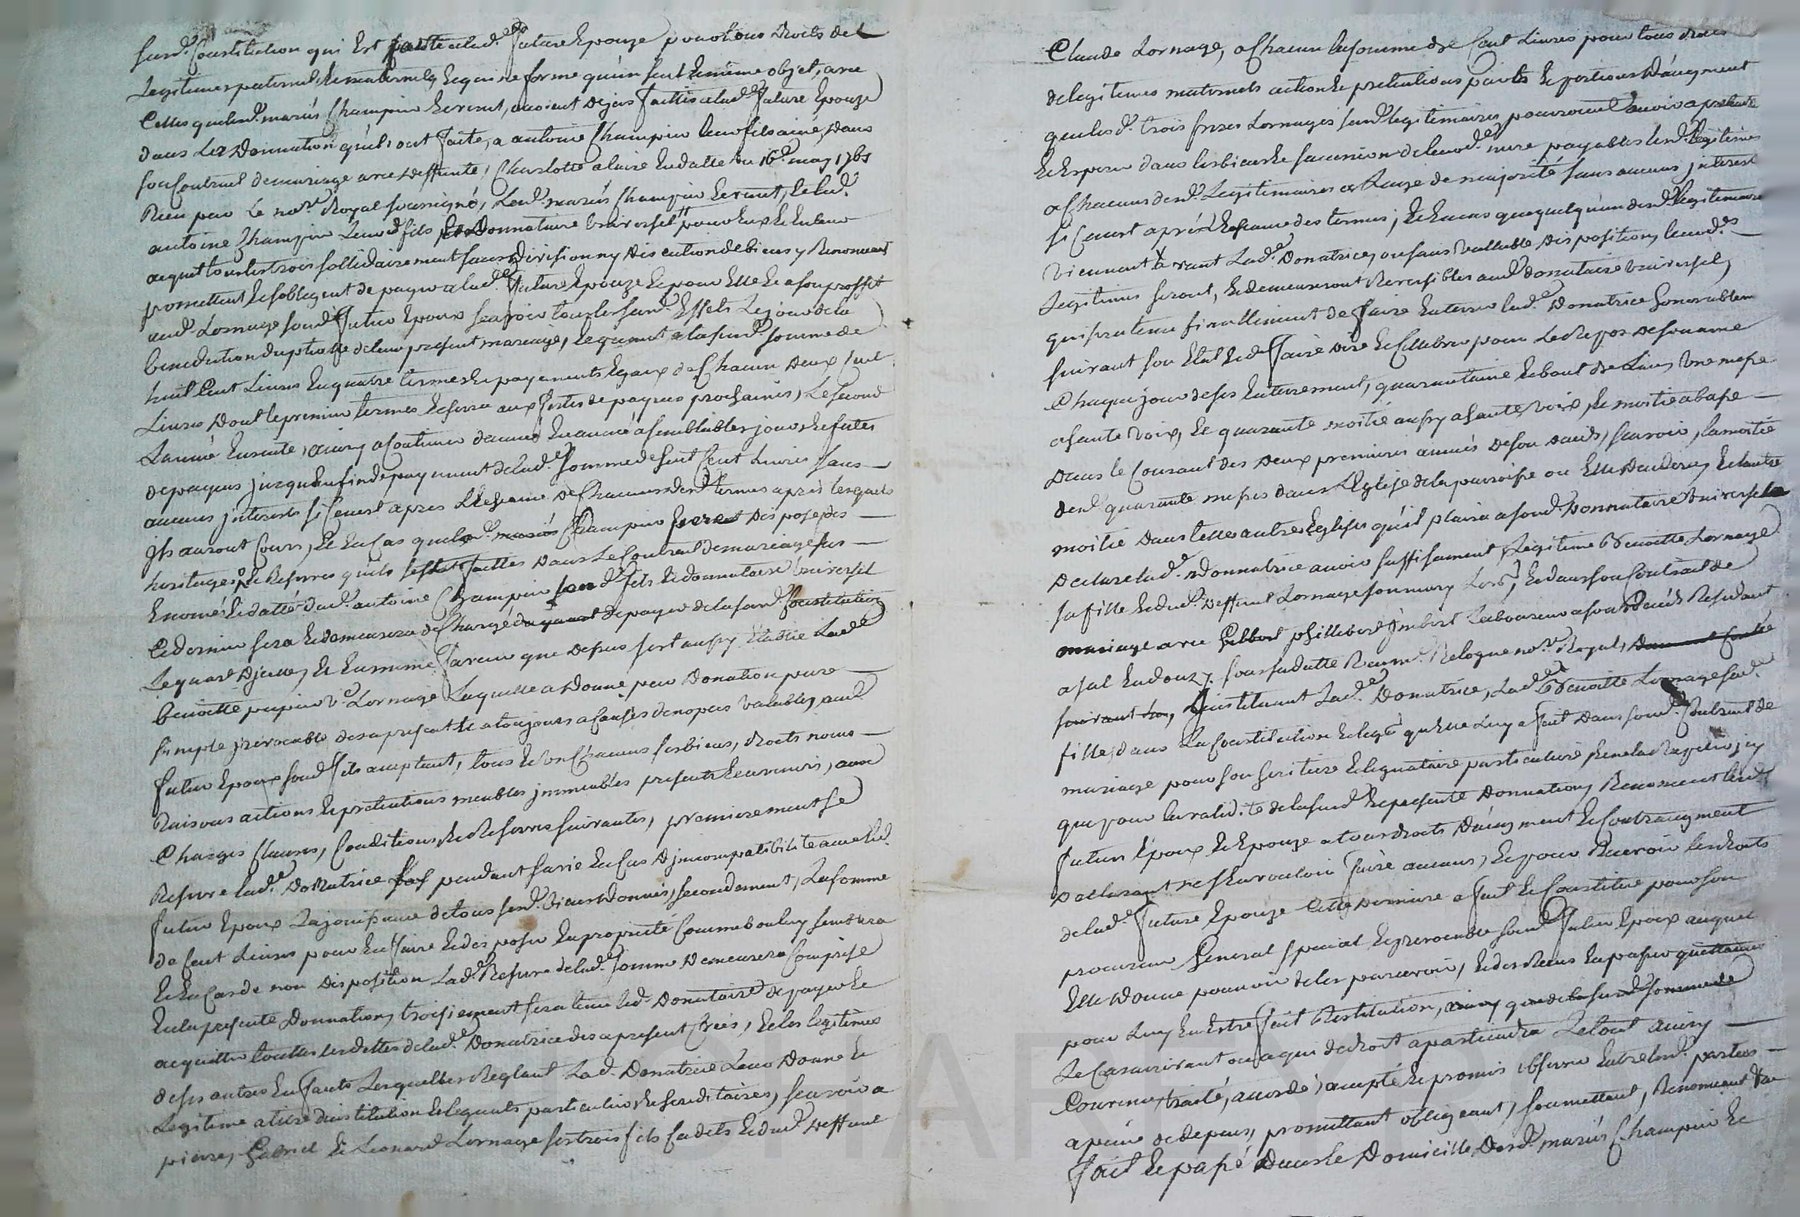 Susd. Constitution qui Est faite alad. future Epouze pour tous Droits de
Legitimes paternels & maternels Lequel ne forme qu'un seul & même objet, avec
Celles que Lesd. mariés Champin & avoient deja faittes alad. future Epouze
dans La Donnation qu'ils ont faite, a antoine Champin leur fils ainé, Dans
son Contract de mariage avec deffunte, Charlotte En datte du 16e. may 1765
Receu par Le nore. Royal soussigné, Lesd. mariés Champin & Led.
antoine Champin Leurd. fils & Donnataire universel pour Eux & Les leurs
aquel tous les trois sollidairement sans division ny Discution de biens y Renonceant
promettent & s'obligent de payer alad. future Epouze & pour Elle & a son proffit
aud. Lornage sond. futur Epoux scavoir tous les susd. Effets Le jour de la
benediction nuptialle de leur present mariage, & quant a la susd. somme de
huit Cent Livres En quatre termes & payements Egaux de Chacun Deux Cent
Livres, Dont le premier terme Echerra aux festes de paques prochaines, Le second
L'année Ensuite, ainsy a Continuer d'année En année a semblables jours & festes
de paques jusqu'en fin de payement de lad. somme de huit Cent Livres sans
aucuns interests si Ce n'est apres L'Echeance de Chacun desd. termes apres lesquels
ils auront Cours, Et En Cas que lesd. mariés Champin Disposes des
heritages & Reserves qu'ils se sont faittes Dans Le Contract de mariage sus
Enoncé & datté dud. antoine Champin leurd. fils & donnataire universel
Ce dernier sera & demeurera dechargé de payer de la susd. Constitution
Le quart D'jcelle, Et En meme faveur que Dessus s'est aussy Etablie Lad.
benoitte pupier ve. Lornage Laquelle a Donné par Donation pure
simple jrrevocable des a present & a toujours a Causes de nopces valable, aud.
futur Epoux sond. fils acceptant, tous & un Chacuns ses biens, droits noms
Raisons actions & pretentions meubles jmmeubles presents & avenirs, aux
Charges Clauses, Conditions, & Reserves suivantes, premierement se
Reserve lad. Donatrice pendant sa vie En Cas D'jncompatibilité avec led.
futur Epoux La jouissance de tous sesd. biens Donnés, secondement, La somme
de Cent Livres pour En faire & disposer En propriété Comme bon luy semblera
& En Cas de non disposition Lad. Reserve de lad. somme Demeurera Comprise
En la presente Donnation, troisiement sera tenu led. Donnataire de payer &
acquitter touttes Les dettes de lad. Donatrice des a present Crées, & les legitimes
de ses autres Enfants Lesquelles Reglant Lad. Donatrice Leur Donne &
Legitime a titre d'institution & legats particuliers & hereditaires, scavoir a
pierre, Gabriel & Leonard Lornage ses trois fils Cadets & dud. Deffunt
Claude Lornage, a Chacun la somme de Cent Livres pour tous droits
de legitimes maternels actions & pretentions parts & portions D'augment
que lesd. trois freres Lornages sesd. legitimaires pourroient avoir a pretendre
& Esperer dans les biens & succession de leurd. mere payables lesd. Legitimes
a Chacuns desd. Legitimaires a L'age de majorité sans aucuns jnterest
si Ce n'est aprés L'Echeance des termes, & En cas que quelqu'un desd. Legitimaires
viennent avant Lad. Donatrice, ou sans vallable Disposition, leursd.
Legitimes seront, & demeureront Reversibles aud. donnataire universel,
qui sera tenu finallement de faire Enterrer lad. Donatrice honorablement
suivant son Etat & de faire dire & Celebrer pour Le Repos de son ame
Chaque jour de ses Enterrement, quarantaine & bout de L'an, une messe
a haute voix, & quarante moitié aussy a haute voix, & moitié a basse
Dans le Courant des Deux premieres années de son deceds, scavoir, la moitié
desd. quarante messes dans L'Eglise de la paroisse ou Elle Decedera, & L'autre
moitié Dans telles autres Eglises qu'il plaira a sond. Donnataire universel
Declare lad. Donnatrice avoir suffisament Legitimé Benoitte Lornage
sa fille & dud. Deffunt Lornage son mary Lors, & dans son Contract de
mariage avec phillibert jmbert Laboureur Resident
a sous sa datte Receu me. Relogue nore. Royal,
jnstituant Lad. Donatrice, Lad. Benoitte Lornage sad.
fille, dans La Constitution & legs qu'Elle Luy a fait Dans sond. Contract de
mariage pour son heritiere & legataire particuliere, & ne la Rapelle jcy
que pour la validité de la susd. & presente Donnation, Renonceant lesd.
futurs Epoux & Epouze a tous droits D'augment & Contraugment
Declarant n'en vouloir faire aucuns, & pour Recevoir les droits
de lad. future Epouze Cette Derniere a fait & Constitué pour son
procureur General special & jrrevocable sond. futur Epoux auquel
Elle Donne pouvoir de les percevoir, & des Recus En passer quittance
pour Luy En Estre fait Restitution,
Le Cas avivant ou a qui de droit apartiendra Le tout ainsy
Convenu, traité, accordé, accepté & promis observer Entre lesd. parties
a peine de depens, promettant obligeant, soumettant, Renonceant &a
fait & passé Dans le Domicille Desd. mariés Champin &
CHARLY.FR